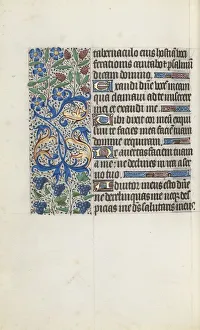 tabernaculo eius hostiã vo
ferationis cantabo et psalmũ
dicam domino.
Exaudi dñe vocẽ meam
qua clamaui ad te miserere
mei et exaudi me.
Tibi dixit cor meũ exqui
siuit te facies mea faciẽ tuam
domine requiram.
Ne auertas faciem tuam
a me ne declines in ira a ser
uo tuo.
Adiutor meus esto dñe
ne derelinquas me neqz des
picias me ds salutaris meus